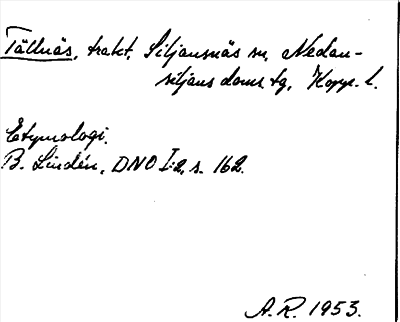 Tällnäs, trakt, Siljansnäs sn, Nedan-
siljans doms. tg, Kopp. l.
Etymologi.
B. Lindén, DNO I:2, s. 162.
A. R. 1953.